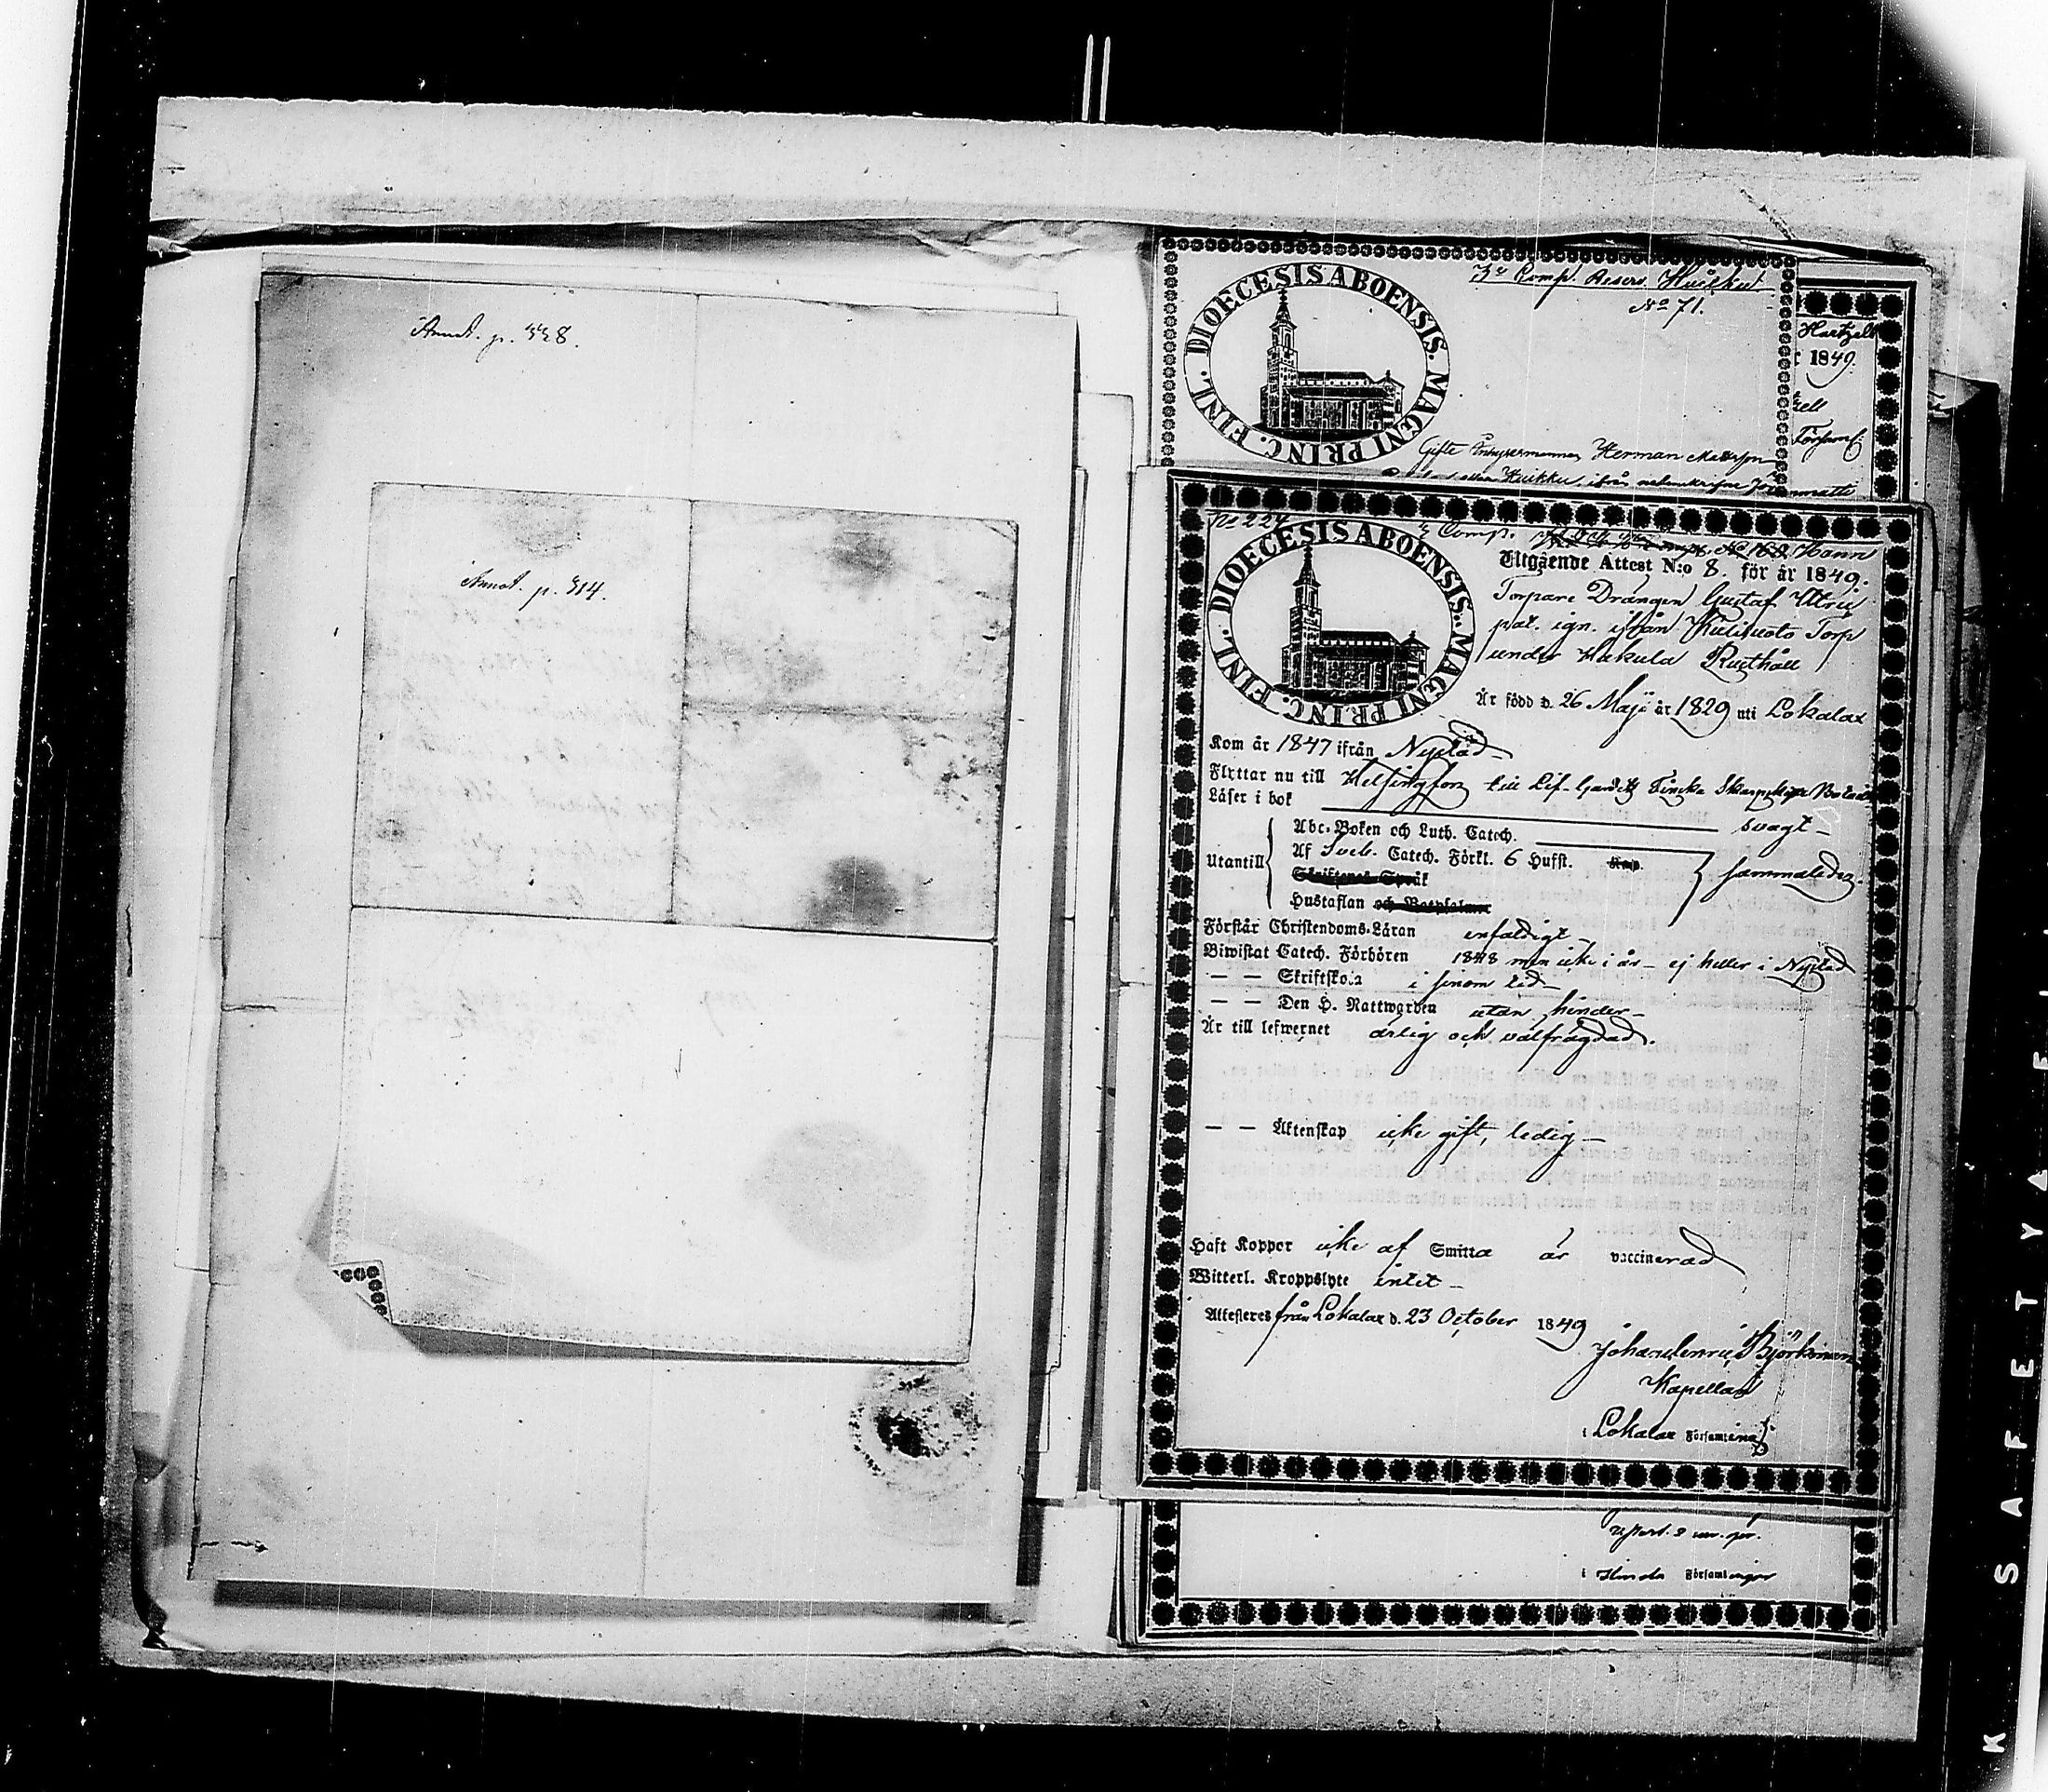 Annot. p. 338.
Annot. p. 314.
DIOECESIS ABOENSIS. MAGNI PRINC. FINL.
3e Comp. Reserv. Huikku
No 71.
Gifte Herman
Huikku, ifrån
Hartzell
1849.
zell
Förseml:
DIOECESIS ABOENSIS. MAGNI PRINC. FINL.
224
Comp. No 160.
Utgående Attest N:o 8. för år 1849.
Torpare Drängen Gustaf
pat. ign. ifrån Torp
under Hakula Rusthåll
Är född d. 26 Maji år 1829 uti Lokalax
Kom år 1847 ifrån Nystad
Flyttar nu till Helsingfors till Lif-Gardets Finska Skarpskytte
Läser i bok svagt
Utantill
Abc-Boken och Luth. Catech.
Af Sveb. Catech. Förkl. 6 Hufst. Kap. sammaledes.
Skriftenes Språk
Hustaflan och Botpsalmer
Förstår Christendoms-Läran enfaldigt
Biwistat Catech. Förhören 1848 men icke i år — ej heller i Nystad
— — Skriftskola i sinom tid
— — Den H. Nattwarden utan hinder
Är till lefwernet ärlig och välfrägdad.
— — Äktenskap icke gift, ledig
Haft Koppor icke af Smitta är vaccinerad
Witterl. Kroppslyte intet
Attesteras från Lokalax d. 23 October 1849
Johan Henric Björkman
Kapellan
i Lokalax Församling
i Församlingar
K SAFETY